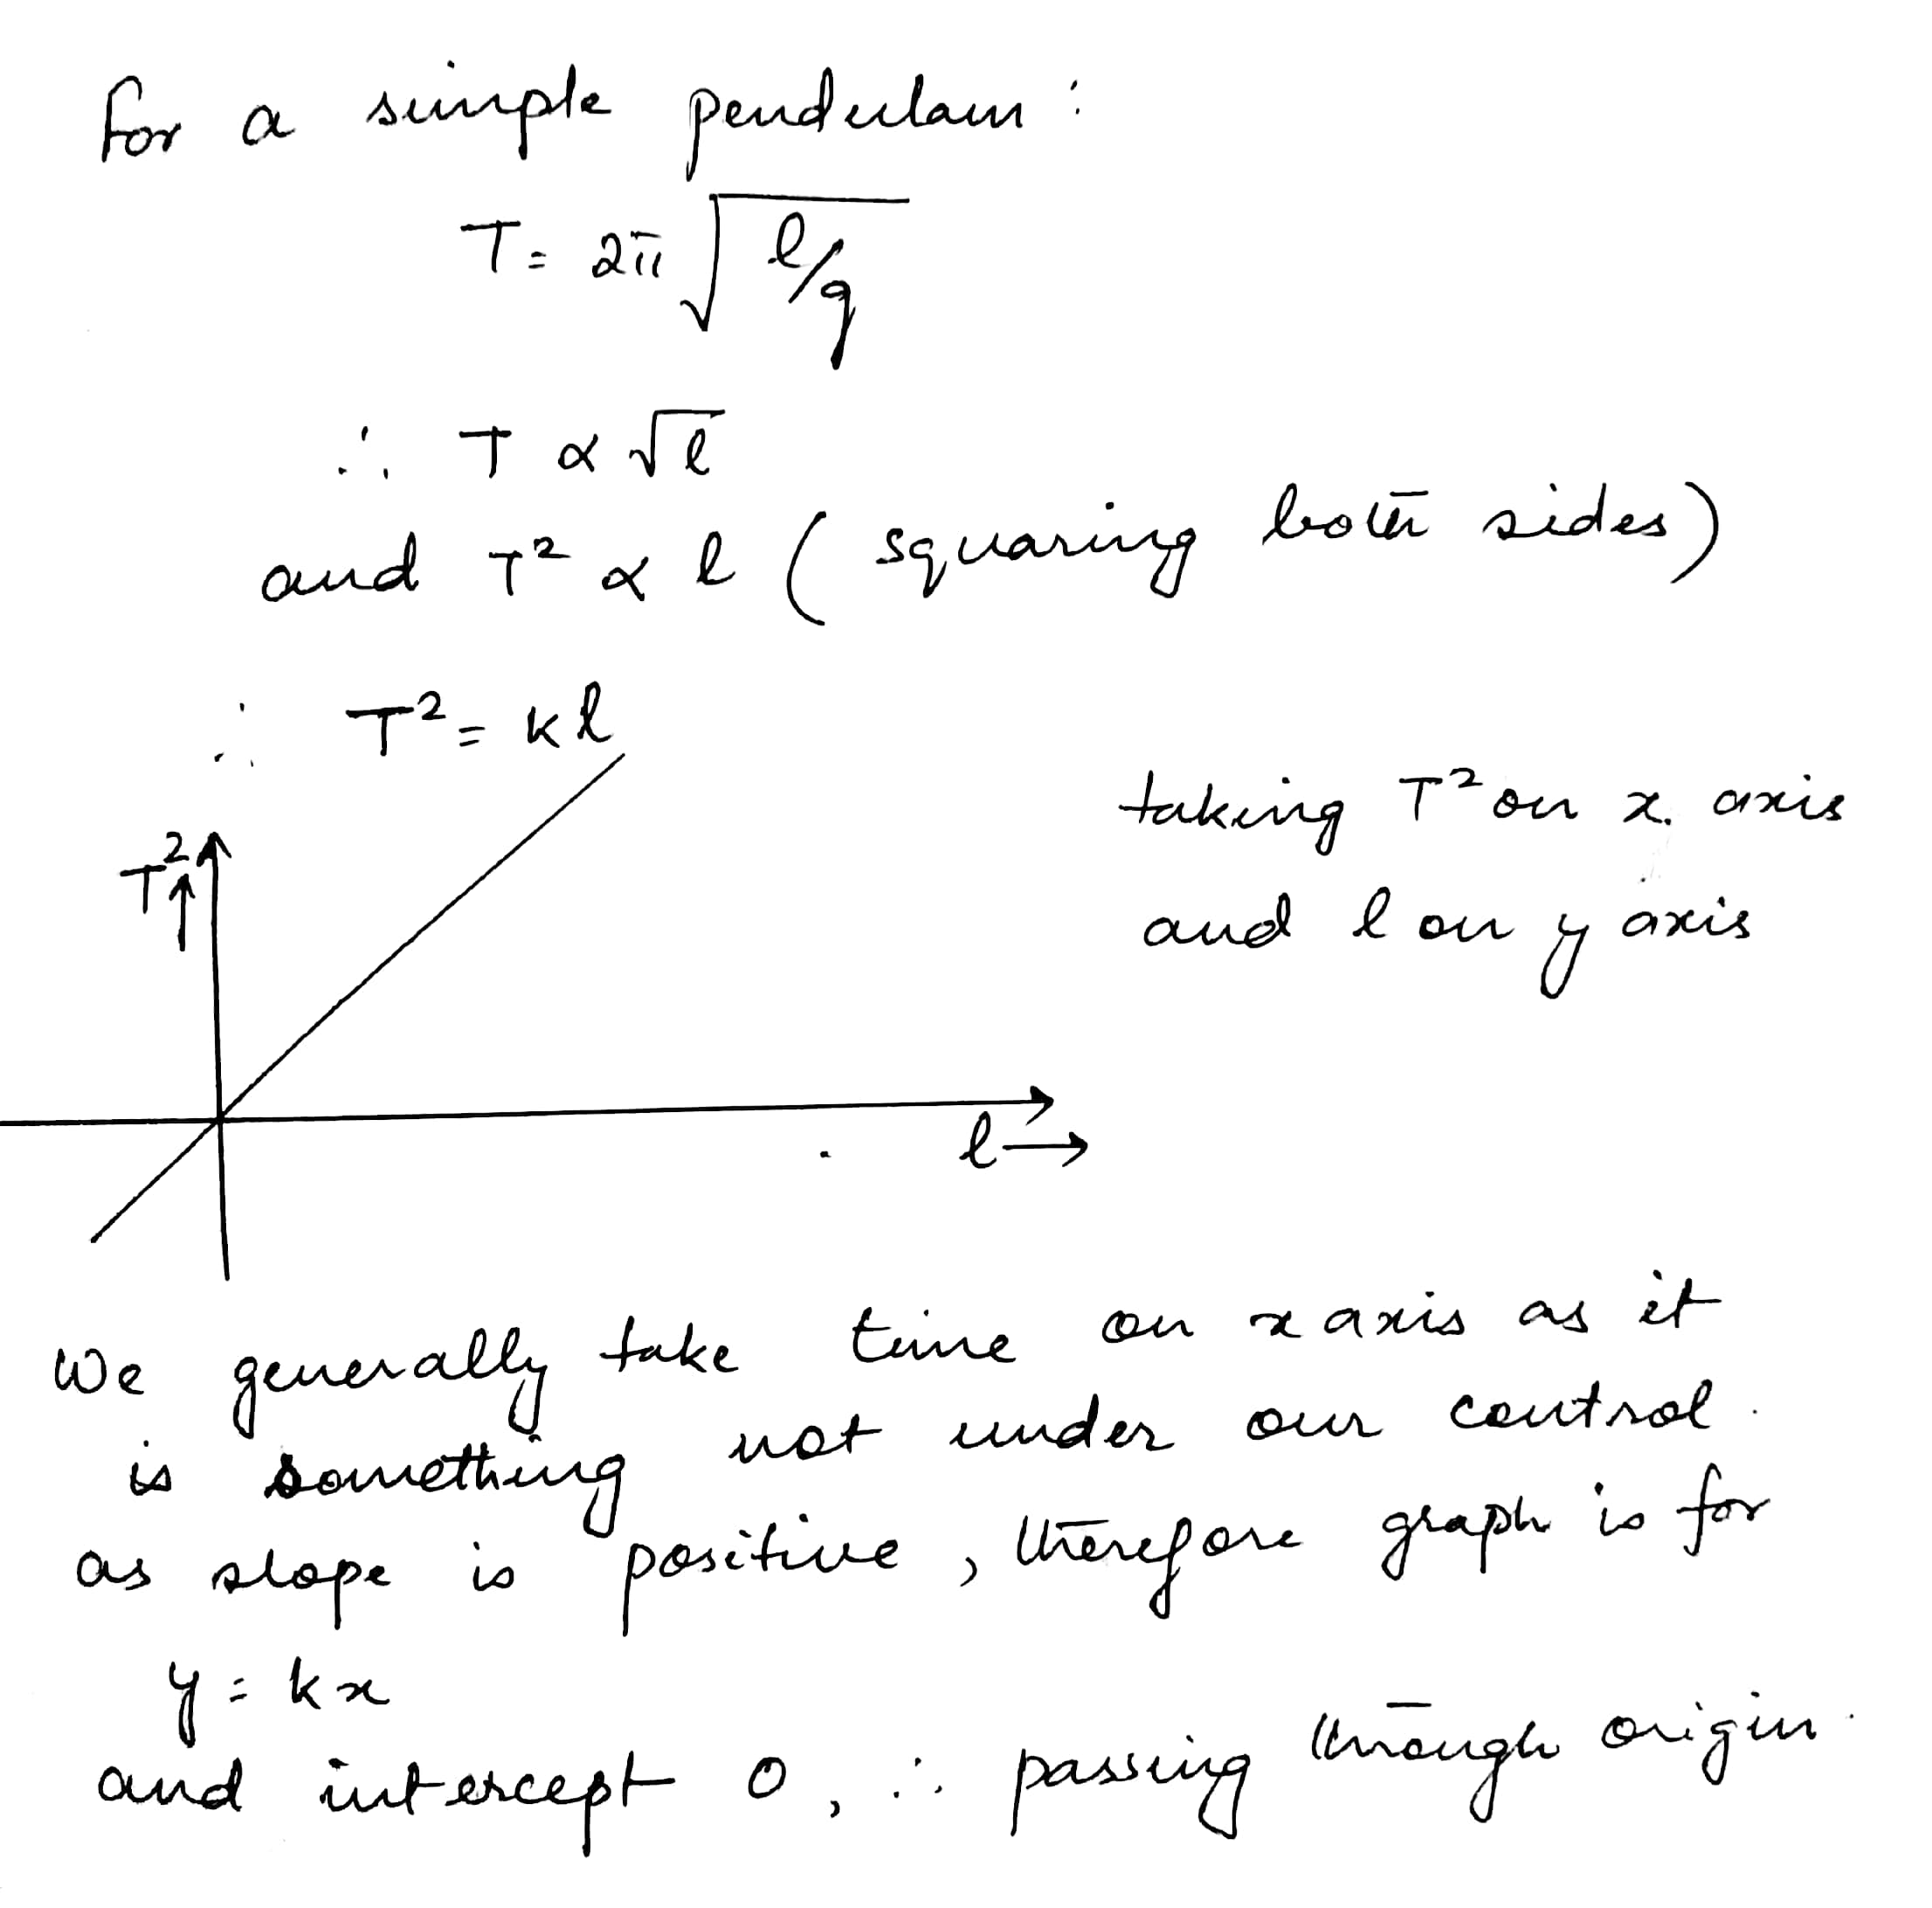 for a simple pendulam :
T = 2π √l/g
∴ T ∝ √l
and T² ∝ l ( squaring both sides)
∴ T² = kl
taking T² on x axis
and l on y axis
T² ↑
l →
We generally take time on x axis as it
is something not under our control.
as slope is positive, therefore graph is for
y = kx
and intercept 0, ∴ passing through origin.